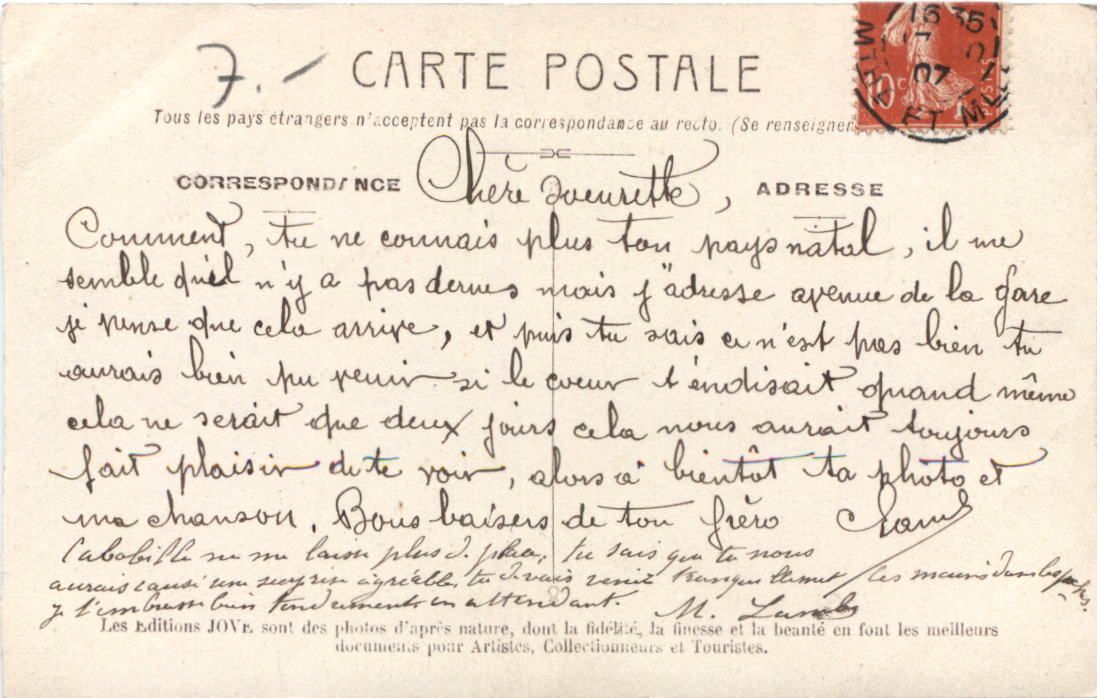 7.-
CARTE POSTALE
Tous les pays étrangers n'acceptent pas la correspondance au recto. (Se renseigner
10c
16 35
07
ET M
CORRESPONDANCE
Chère soeurette,
ADRESSE
Comment, tu ne connais plus ton pays natal, il me
semble qu'il n'y a pas mais j'adresse avenue de la gare
je pense que cela arrive, et puis tu sais ce n'est pas bien tu
aurais bien pu venir si le coeur t'en disait quand même
cela ne serait que deux jours cela nous aurait toujours
fait plaisir de te voir, alors à bientôt ta photo et
ma chanson. Bons baisers de ton frèro
ne me laisse plus de place, tu sais que tu nous
aurais causé une surprise agréable, tu devais venir tranquillement les mains dans les poches.
je t'embrasse bien tendrement en attendant. M.
Les Editions JOVE sont des photos d'après nature, dont la fidélité, la finesse et la beauté en font les meilleurs
documents pour Artistes, Collectionneurs et Touristes.